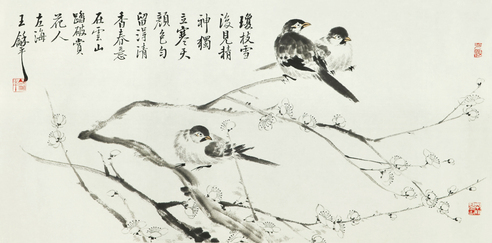 瓊枝雪
後見精
神獨
立寒天
顏色勻
留得清
香春意
在雲山
踏破賞
花人
左海
王